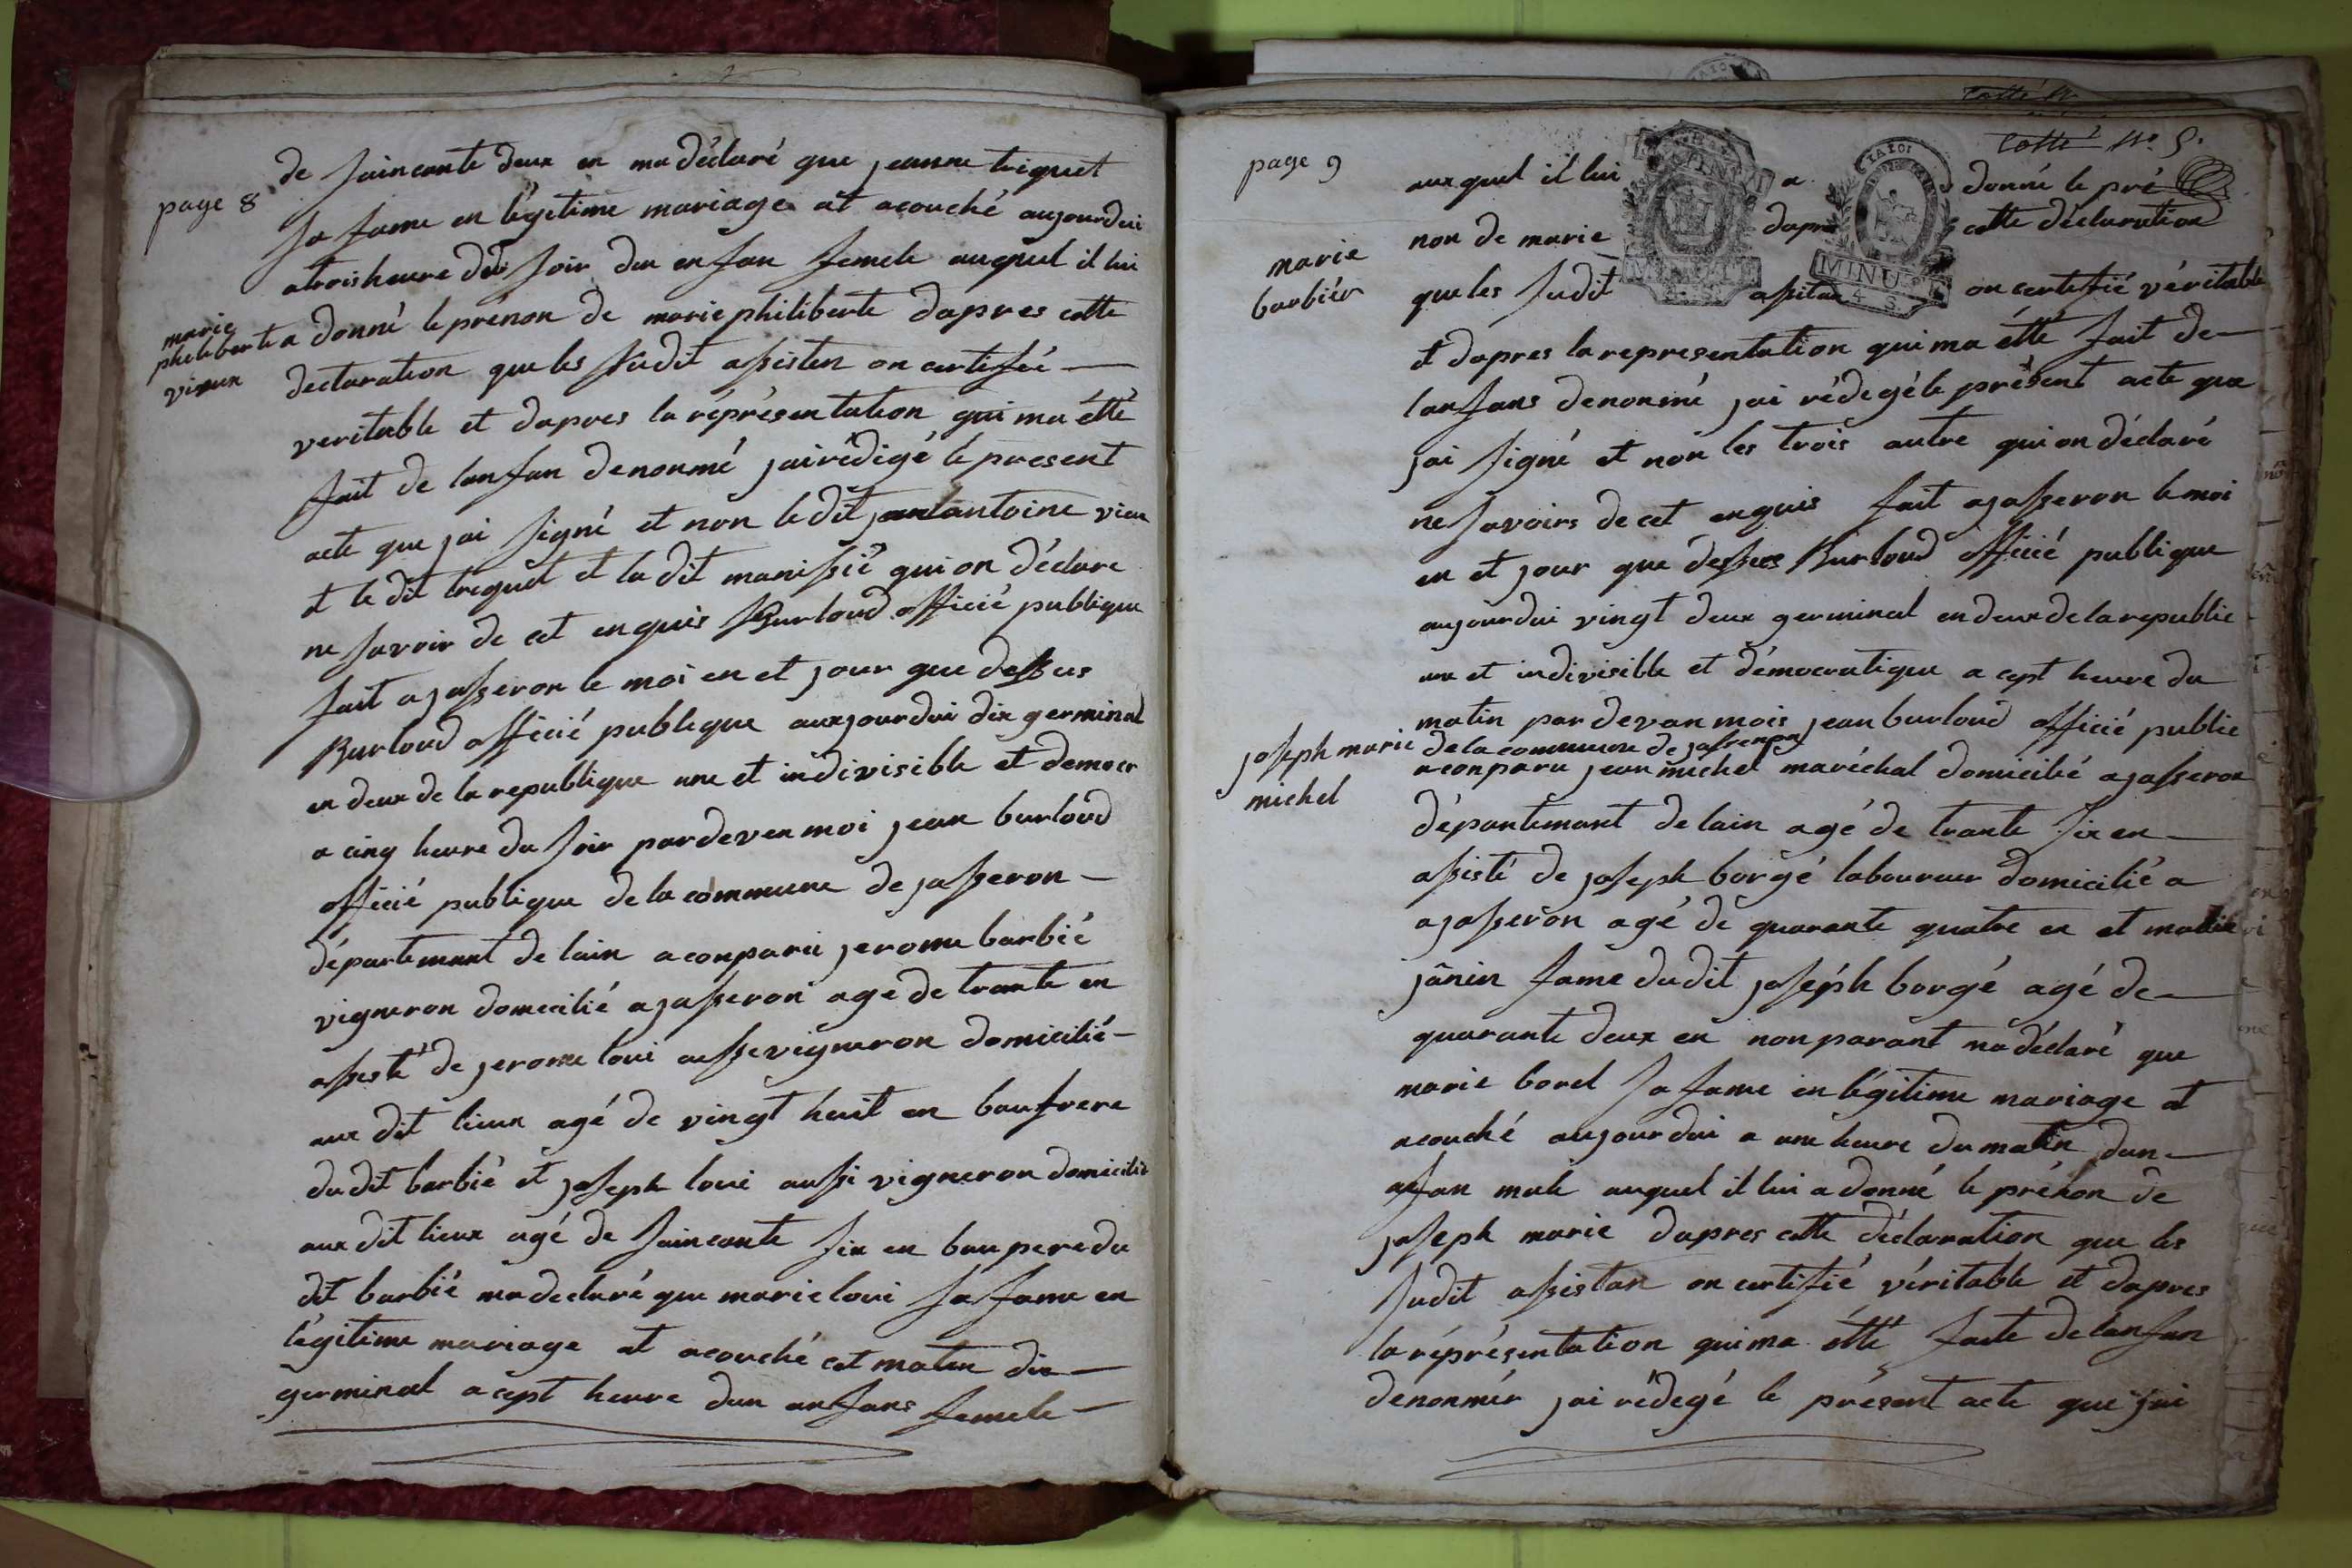 page 8
de sincante deux en ma déclaré que jeanne triquet
sa fame en légetime mariage at acouché aujourdui
a trois heure du soir dun enfan femele auquel il lui
marie
philiberte
vieux
a donné le prénon de marie philiberte dapres cette
declaration que les sudit assisten on certifié
veritable et dapres la réprésentation qui ma étté
fait de lanfan denonmé jai rédigé le present
acte que jai signé et non le dit antoine vieux
et le dit triquet et la dit manissié qui on déclare
ne savoir de cet enquis Burloud officié publique
fait a jasseron le moi en et jour que dessus
Burloud officié publique aux jourdui dix germinal
en deux de la republique une et indivisible et democr
a cinq heure du soir pardeven moi jean burloud
officié publique de la commune de jasseron
département de lain a conparu jerome barbié
vigneron domecilié a jasseron age de trante en
assisté de jerome loui aussi vigneron domicilié
aux dit lieux agé de vingt huit en baufrere
du dit barbié et joseph loui aussi vigneron domicilié
aux dit lieux agé de sincante six en bau pere du
dit barbié ma declaré que marie loui sa fame en
légitime mariage at acouché cet maten dix
germinal a cept heure dun anfans femele
page 9
Cotté No 5.
aux quel il lui a donné le pré
marie
barbiér
non de marie dapres cette déclaration
que les sudit assitan on certefié véritable
MINUTE
MINUTE
4 S
et dapres la representation qui ma étté fait de
lanfans denonmé jai rédegé le présent acte que
jai signé et non les trois autre qui on déclaré
ne savoirs de cet enquis fait a jasseron le moi
en et jour que dessus Burloud officié publique
aujourdui vingt deux germinal en deux de la republic
une et indivisible et démocratique a cept heure du
matin par devan mois jean burloud officié public
de la commune de jasseron
joseph marie
michel
a conparu jean michel maréchal domicilié a jasseron
département de lain agé de trante six en
assisté de joseph borgé laboureur domicilié a
a jasseron agé de quarante quatre en et
jânin fame dudit joséph borgé agé de
quarante deux en non parant ma déclaré que
marie borel sa fame in légitime mariage at
acouché aujourdui a une heure du matin dun
anfan male auquel il lui a donné le prénon de
joseph marie dapres cette déclaration que les
sudit assistan on certifié véritable et dapres
la réprésentation qui ma étté faite de lanfan
denonmér jai rédegé le présent acte que jai